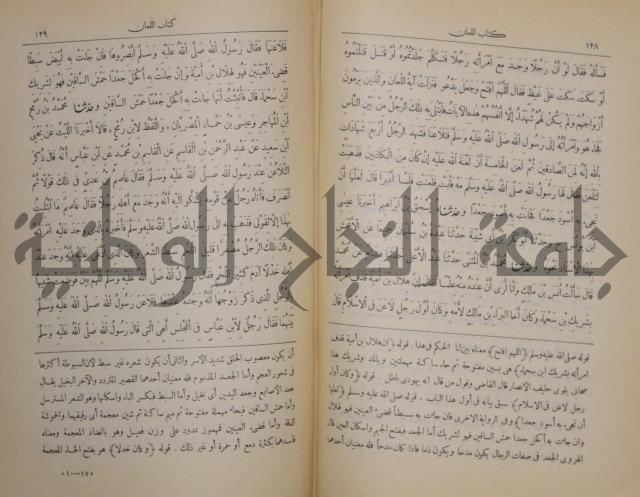 كتاب اللعان
١٢٨
فسأله فقال لو أن رجلا وجد مع امرأته رجلا فتكلم جلدتموه أو قتل قتلتموه
أو سكت سكت على غيظ فقال اللهم افتح وجعل يدعو فنزلت آية اللعان والذين يرمون
أزواجهم ولم يكن لهم شهداء إلا أنفسهم هذه الآيات فابتلي به ذلك الرجل من بين الناس
فجاء هو وامرأته إلى رسول الله صلى الله عليه وسلم فتلاعنا فشهد الرجل أربع شهادات
بالله إنه لمن الصادقين ثم لعن الخامسة أن لعنة الله عليه إن كان من الكاذبين فذهبت
لتلعن فقال لها رسول الله صلى الله عليه وسلم مه فأبت فلعنت فلما أدبرا قال لعلها أن
تجيء به أسود جعدا فجاءت به أسود جعدا و حدثناه إسحق بن إبراهيم أخبرنا عيسى
قال سألت أنس بن مالك وأنا أرى أن عنده منه علما فقال إن هلال بن أمية قذف امرأته
بشريك بن سحماء وكان أخا البراء بن مالك لأمه وكان أول رجل لاعن في الإسلام قال
قوله صلى الله عليه وسلم ﴿اللهم افتح﴾ معناه بين لنا الحكم في هذا. قوله ﴿إن هلال بن أمية قذف
امرأته بشريك ابن سحماء﴾ هي بسين مفتوحة ثم حاء ساكنة مهملتين وبالمد وشريك هذا
صحابي بلوي حليف الأنصار قال القاضي وقول من قال إنه يهودي باطل. قوله ﴿وكان أول
رجل لاعن في الاسلام﴾ سبق بيانه في أول هذا الباب. قوله صلى الله عليه وسلم ﴿لعلها
أن تجيء به أسود جعدا﴾ وفي الرواية الأخرى فان جاءت به سبطا قضيء العينين فهو لهلال
وان جاءت به أكحل جعدا حمش الساقين فهو لشريك أما الجعد فبفتح الجيم واسكان العين قال
الهروي الجعد في صفات الرجال يكون مدحا ويكون ذما فاذا كان مدحا فله معنيان أحدهما
كتاب اللعان
١٢٩
فلاعنها فقال رسول الله صلى الله عليه وسلم أبصروها فان جاءت به أبيض سبطا
قضيء العينين فهو لهلال بن أمية وإن جاءت به أكحل جعدا حمش الساقين فهو لشريك
ابن سحماء قال فأنبئت أنها جاءت به أكحل جعدا حمش الساقين و حدثنا محمد بن رمح
ابن المهاجر وعيسى بن حماد المصريان واللفظ لابن رمح قالا أخبرنا الليث عن يحيى
ابن سعيد عن عبد الرحمن بن القاسم عن القاسم بن محمد عن ابن عباس أنه قال ذكر
التلاعن عند رسول الله صلى الله عليه وسلم فقال عاصم بن عدي في ذلك قولا ثم
انصرف فأتاه رجل من قومه يشكو إليه أنه وجد مع أهله رجلا فقال عاصم ما ابتليت
بهذا إلا لقولي فذهب به إلى رسول الله صلى الله عليه وسلم فأخبره بالذي وجد عليه امرأته
وكان ذلك الرجل مصفرا قليل اللحم سبط الشعر وكان الذي ادعى عليه أنه وجد عند
أهله خدلا آدم كثير اللحم فقال رسول الله صلى الله عليه وسلم اللهم بين فوضعت شبيها
بالرجل الذي ذكر زوجها أنه وجده عندها فلاعن رسول الله صلى الله عليه وسلم
بينهما فقال رجل لابن عباس في المجلس أهي التي قال رسول الله صلى الله عليه وسلم
أن يكون معصوب الخلق شديد الأسر والثاني أن يكون شعره غير سبط لأن السبوطة أكثرها
في شعور العجم وأما الجعد المذموم فله معنيان أحدهما القصير المتردد والآخر البخيل يقال
جعد الأصابع وجعد اليدين أي بخيل وأما السبط فبكسر الباء واسكانها وهو الشعر المسترسل
وأما حمش الساقين فبحاء مهملة مفتوحة ثم ميم ساكنة ثم شين معجمة أي رقيقهما والحموشة
الدقة وأما قضيء العينين فمهموز ممدود على وزن فعيل وهو بالضاد المعجمة ومعناه
فاسدهما بكثرة دمع أو حمرة أو غير ذلك. قوله ﴿وكان خدلا﴾ هو بفتح الخاء المعجمة
«١٧ - ١٠»
جامعة النجاح الوطنية